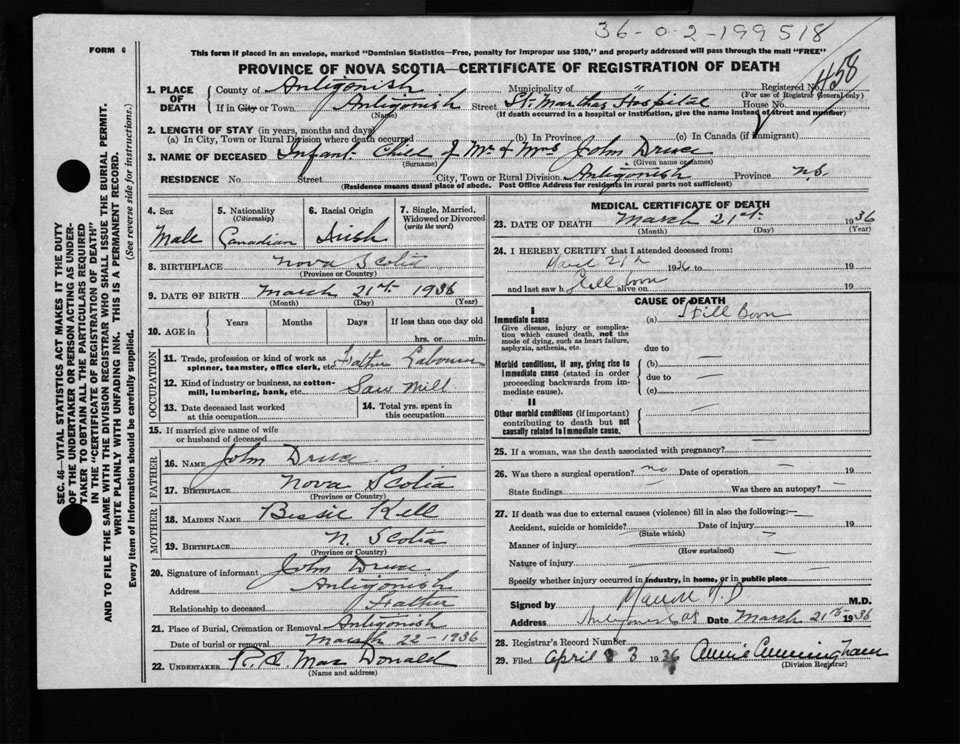 36-0-2-199518
FORM 6
This form if placed in an envelope, marked "Dominion Statistics—Free, penalty for improper use $300," and properly addressed will pass through the mail "FREE"
PROVINCE OF NOVA SCOTIA—CERTIFICATE OF REGISTRATION OF DEATH
Registered No. 458
(For use of Registrar General only)
1. PLACE OF DEATH
County of Antigonish Municipality of "
If in City or Town Antigonish Street St. Marthas Hospital House No.
(Name) (If death occurred in a hospital or institution, give the name instead of street and number)
2. LENGTH OF STAY (in years, months and days)
(a) In City, Town or Rural Division where death occurred (b) In Province (c) In Canada (if immigrant)
3. NAME OF DECEASED Infant Child of Mr & Mrs John Druce
(Surname) (Given name or names)
RESIDENCE No. Street City, Town or Rural Division Antigonish Province N.S.
(Residence means usual place of abode. Post Office Address for residents in rural parts not sufficient)
4. Sex
Male
5. Nationality
(Citizenship)
Canadian
6. Racial Origin
Irish
7. Single, Married, Widowed or Divorced
(write the word)
8. BIRTHPLACE Nova Scotia
(Province or Country)
9. DATE OF BIRTH March 21st 1936
(Month) (Day) (Year)
10. AGE in
Years Months Days If less than one day old
hrs. or min.
OCCUPATION
11. Trade, profession or kind of work as spinner, teamster, office clerk, etc. Father Labourer
12. Kind of industry or business, as cotton-mill, lumbering, bank, etc. Saw Mill
13. Date deceased last worked at this occupation
14. Total yrs. spent in this occupation
15. If married give name of wife or husband of deceased
FATHER
16. NAME John Druce
17. BIRTHPLACE Nova Scotia
(Province or Country)
MOTHER
18. MAIDEN NAME Bessie Kell
19. BIRTHPLACE N. Scotia
(Province or Country)
20. Signature of informant John Druce
Address Antigonish
Relationship to deceased Father
21. Place of Burial, Cremation or Removal Antigonish
Date of burial or removal March 22-1936
22. UNDERTAKER R. C. MacDonald
(Name and address)
MEDICAL CERTIFICATE OF DEATH
23. DATE OF DEATH March 21st 1936
(Month) (Day) (Year)
24. I HEREBY CERTIFY that I attended deceased from:
March 21st 1936 to 19
and last saw h Still born alive on 19
CAUSE OF DEATH
I
Immediate cause (a) Still Born
Give disease, injury or complication which caused death, not the mode of dying, such as heart failure, asphyxia, asthenia, etc.
due to
Morbid conditions, if any, giving rise to immediate cause (stated in order proceeding backwards from immediate cause)
(b)
due to
(c)
II
Other morbid conditions (if important) contributing to death but not causally related to immediate cause.
25. If a woman, was the death associated with pregnancy?
26. Was there a surgical operation? no Date of operation 19
State findings Was there an autopsy?
27. If death was due to external causes (violence) fill in also the following:
Accident, suicide or homicide? Date of injury 19
(State which)
Manner of injury
(How sustained)
Nature of injury
Specify whether injury occurred in industry, in home, or in public place
Signed by M.D. M.D.
Address Date March 21st 1936
28. Registrar's Record Number
29. Filed April 3 1936 Annie Cunningham
(Division Registrar)
SEC. 46—VITAL STATISTICS ACT MAKES IT THE DUTY
OF THE UNDERTAKER OR PERSON ACTING AS UNDER-
TAKER TO OBTAIN ALL THE PARTICULARS REQUIRED
IN THE "CERTIFICATE OF REGISTRATION OF DEATH"
AND TO FILE THE SAME WITH THE DIVISION REGISTRAR WHO SHALL ISSUE THE BURIAL PERMIT.
WRITE PLAINLY WITH UNFADING INK. THIS IS A PERMANENT RECORD.
Every item of information should be carefully supplied. (See reverse side for instructions.)